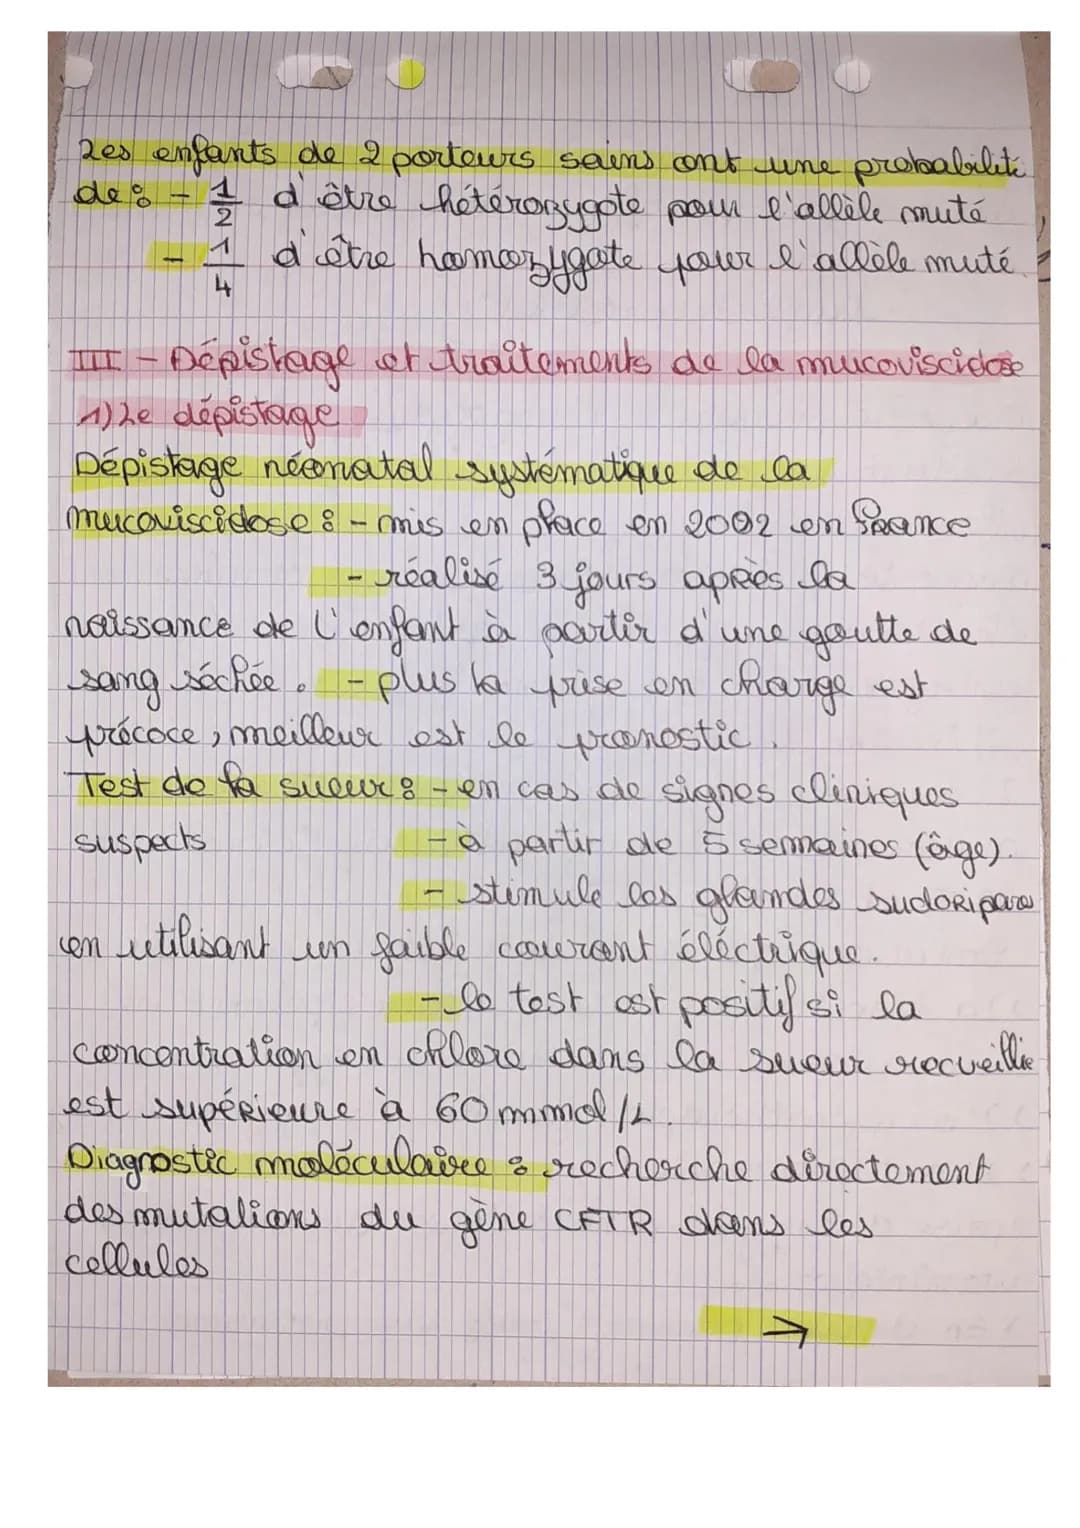 Les enfants de 2 porteurs sains ont une probabilité
de : - 1/2 d'être hétérozygote pour l'allèle muté
- 1/4 d'être homozygote pour l'allèle muté.
III - Dépistage et traitements de la mucoviscidose
1) Le dépistage
Dépistage néonatal systématique de la
mucoviscidose : - mis en place en 2002 en France
- réalisé 3 jours après la
naissance de l'enfant à partir d'une goutte de
sang séchée. - plus la prise en charge est
précoce, meilleur est le pronostic.
Test de la sueur : - en cas de signes cliniques
suspects
- à partir de 5 semaines (âge).
- stimule les glandes sudoripares
en utilisant un faible courant éléctrique.
- le test est positif si la
concentration en chlore dans la sueur recueillie
est supérieure à 60 mmol/L.
Diagnostic moléculaire : recherche directement
des mutations du gène CFTR dans les
cellules
→